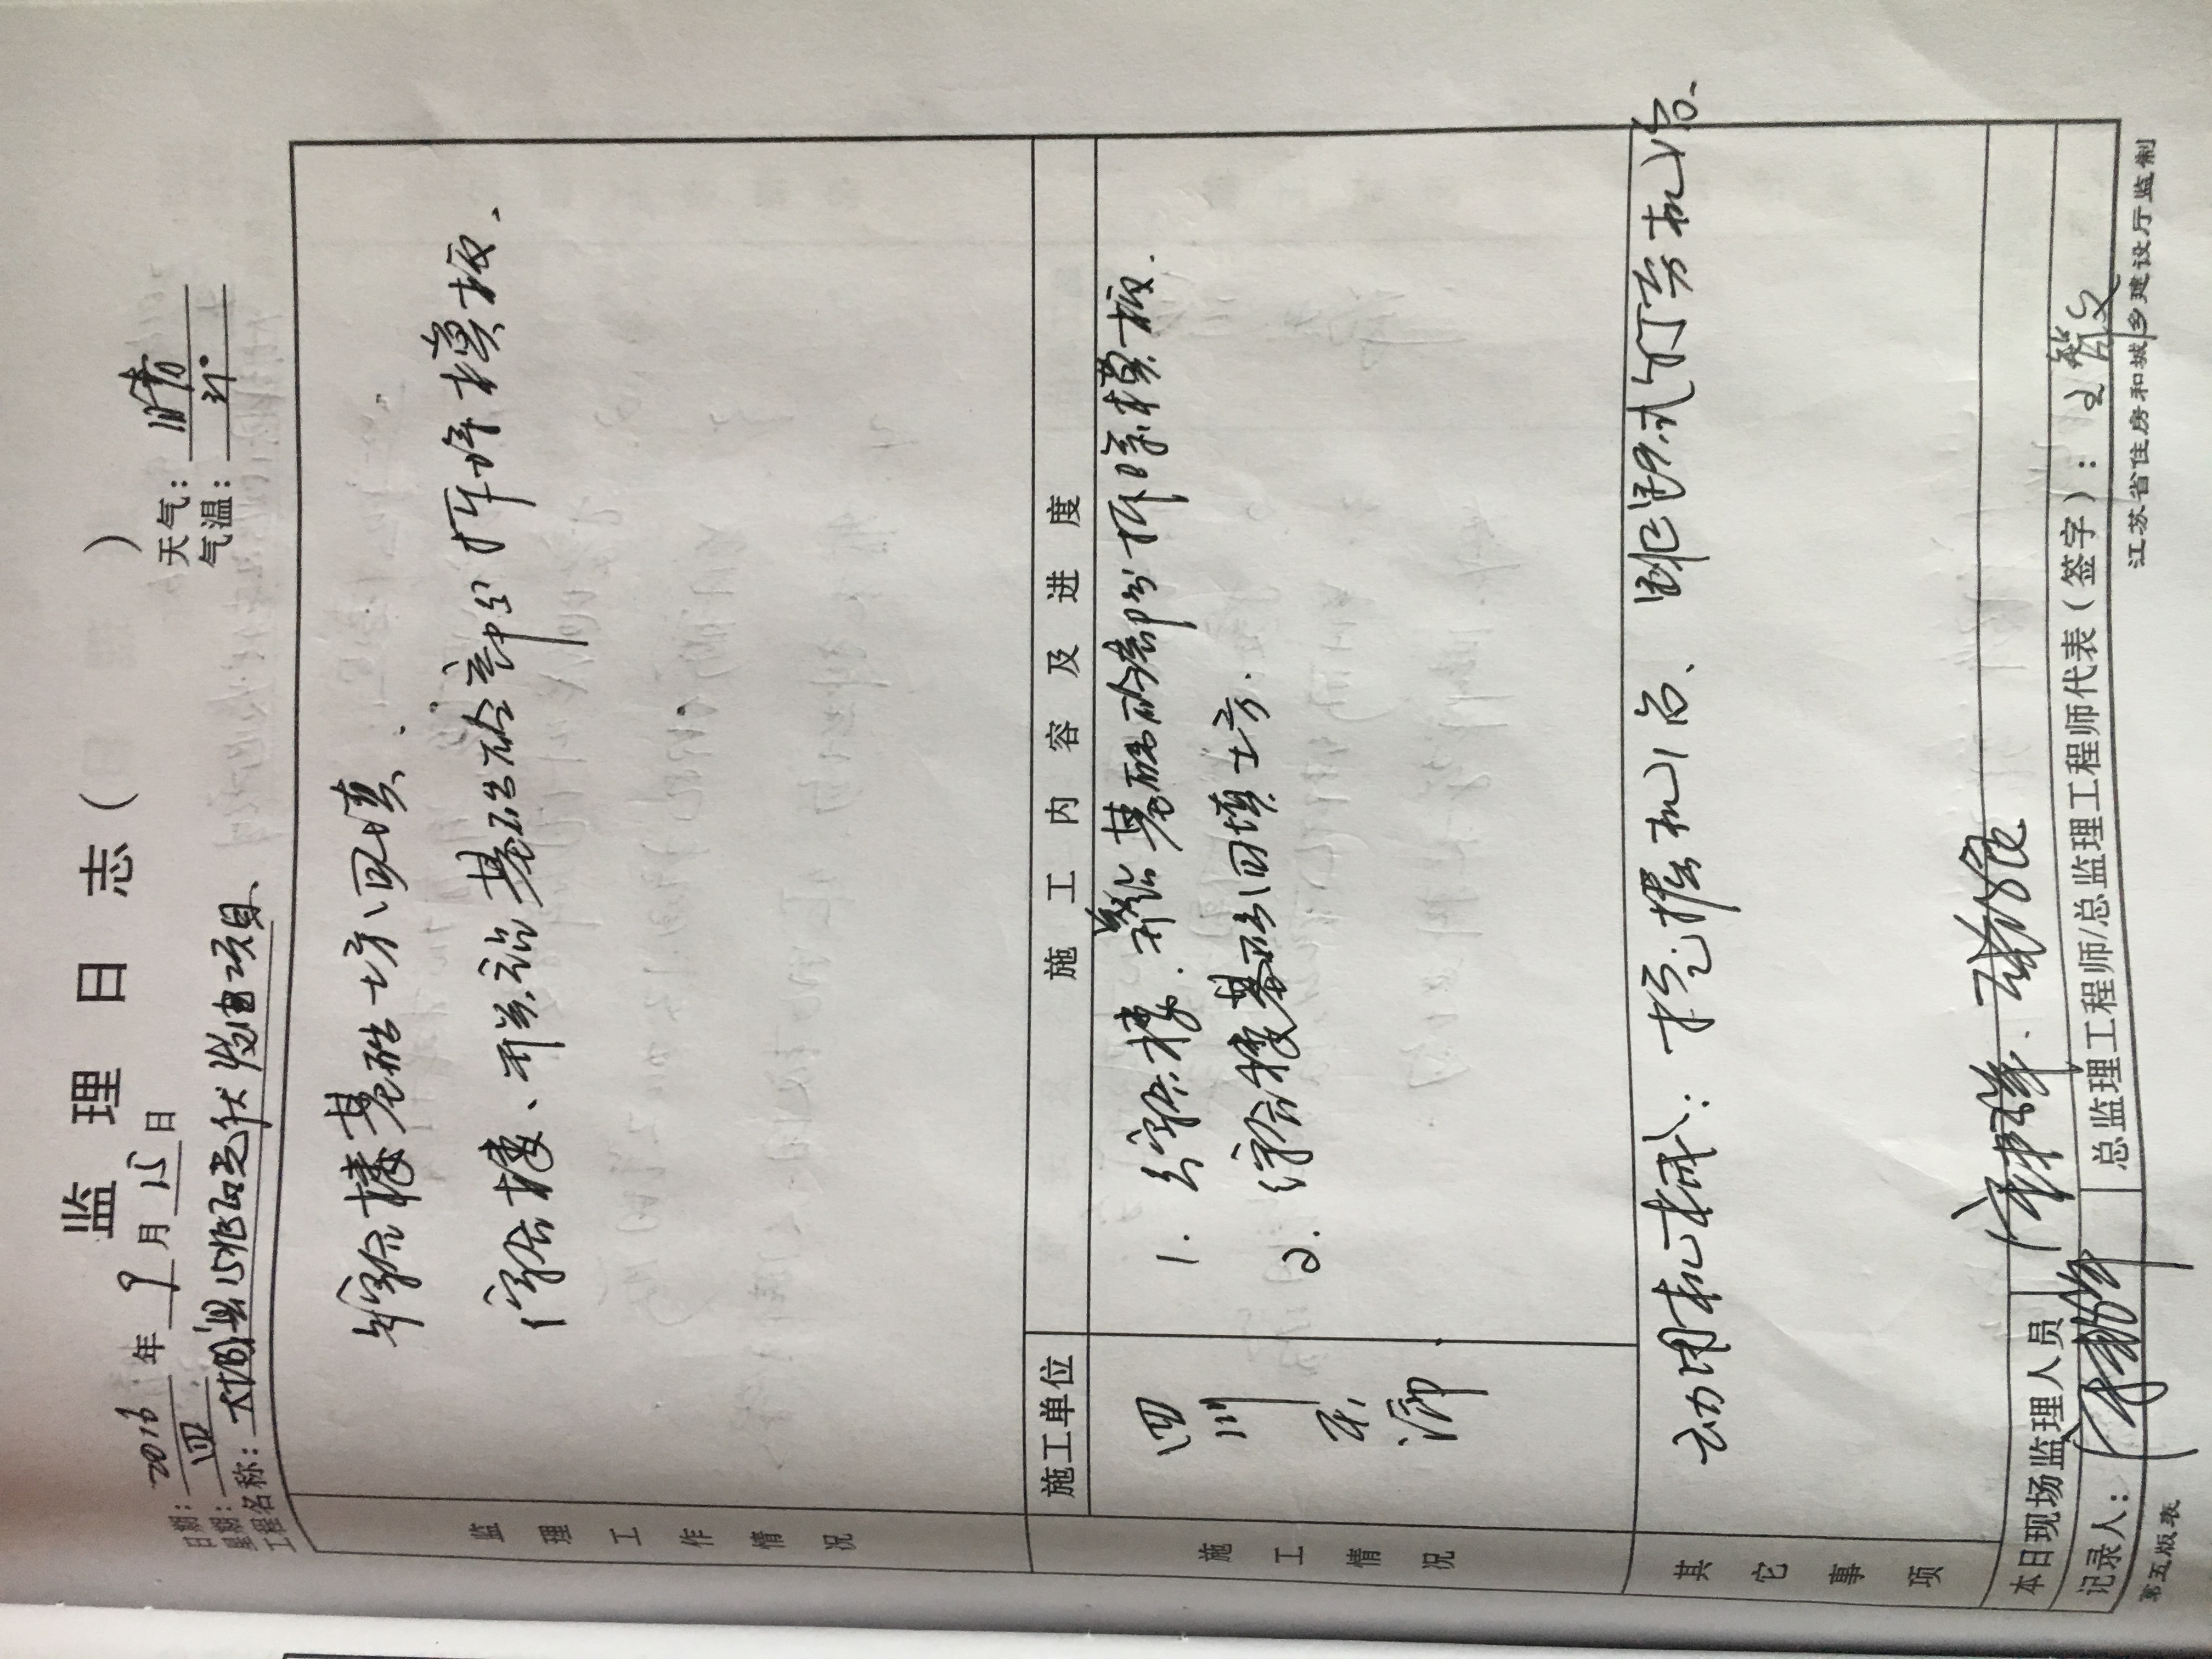 监理日志( )
日期: 2016 年 9 月 15 日 天气: 晴
星期: 四 气温: 31°
工程名称: 大悟县 光伏发电项目、
监理工作情况
综合楼基础土方回填、
综合楼、 基础砼部分拆除模板、
施工情况
施工单位 施工内容及进度
四川
1. 综合楼. 基础砼部分拆除模板.
2. 综合楼基础回填土方.
其它事项
动用机械: 挖掘机1台、 机1台、
本日现场监理人员
记录人: 总监理工程师/总监理工程师代表(签字):
第五版表 江苏省住房和城乡建设厅监制